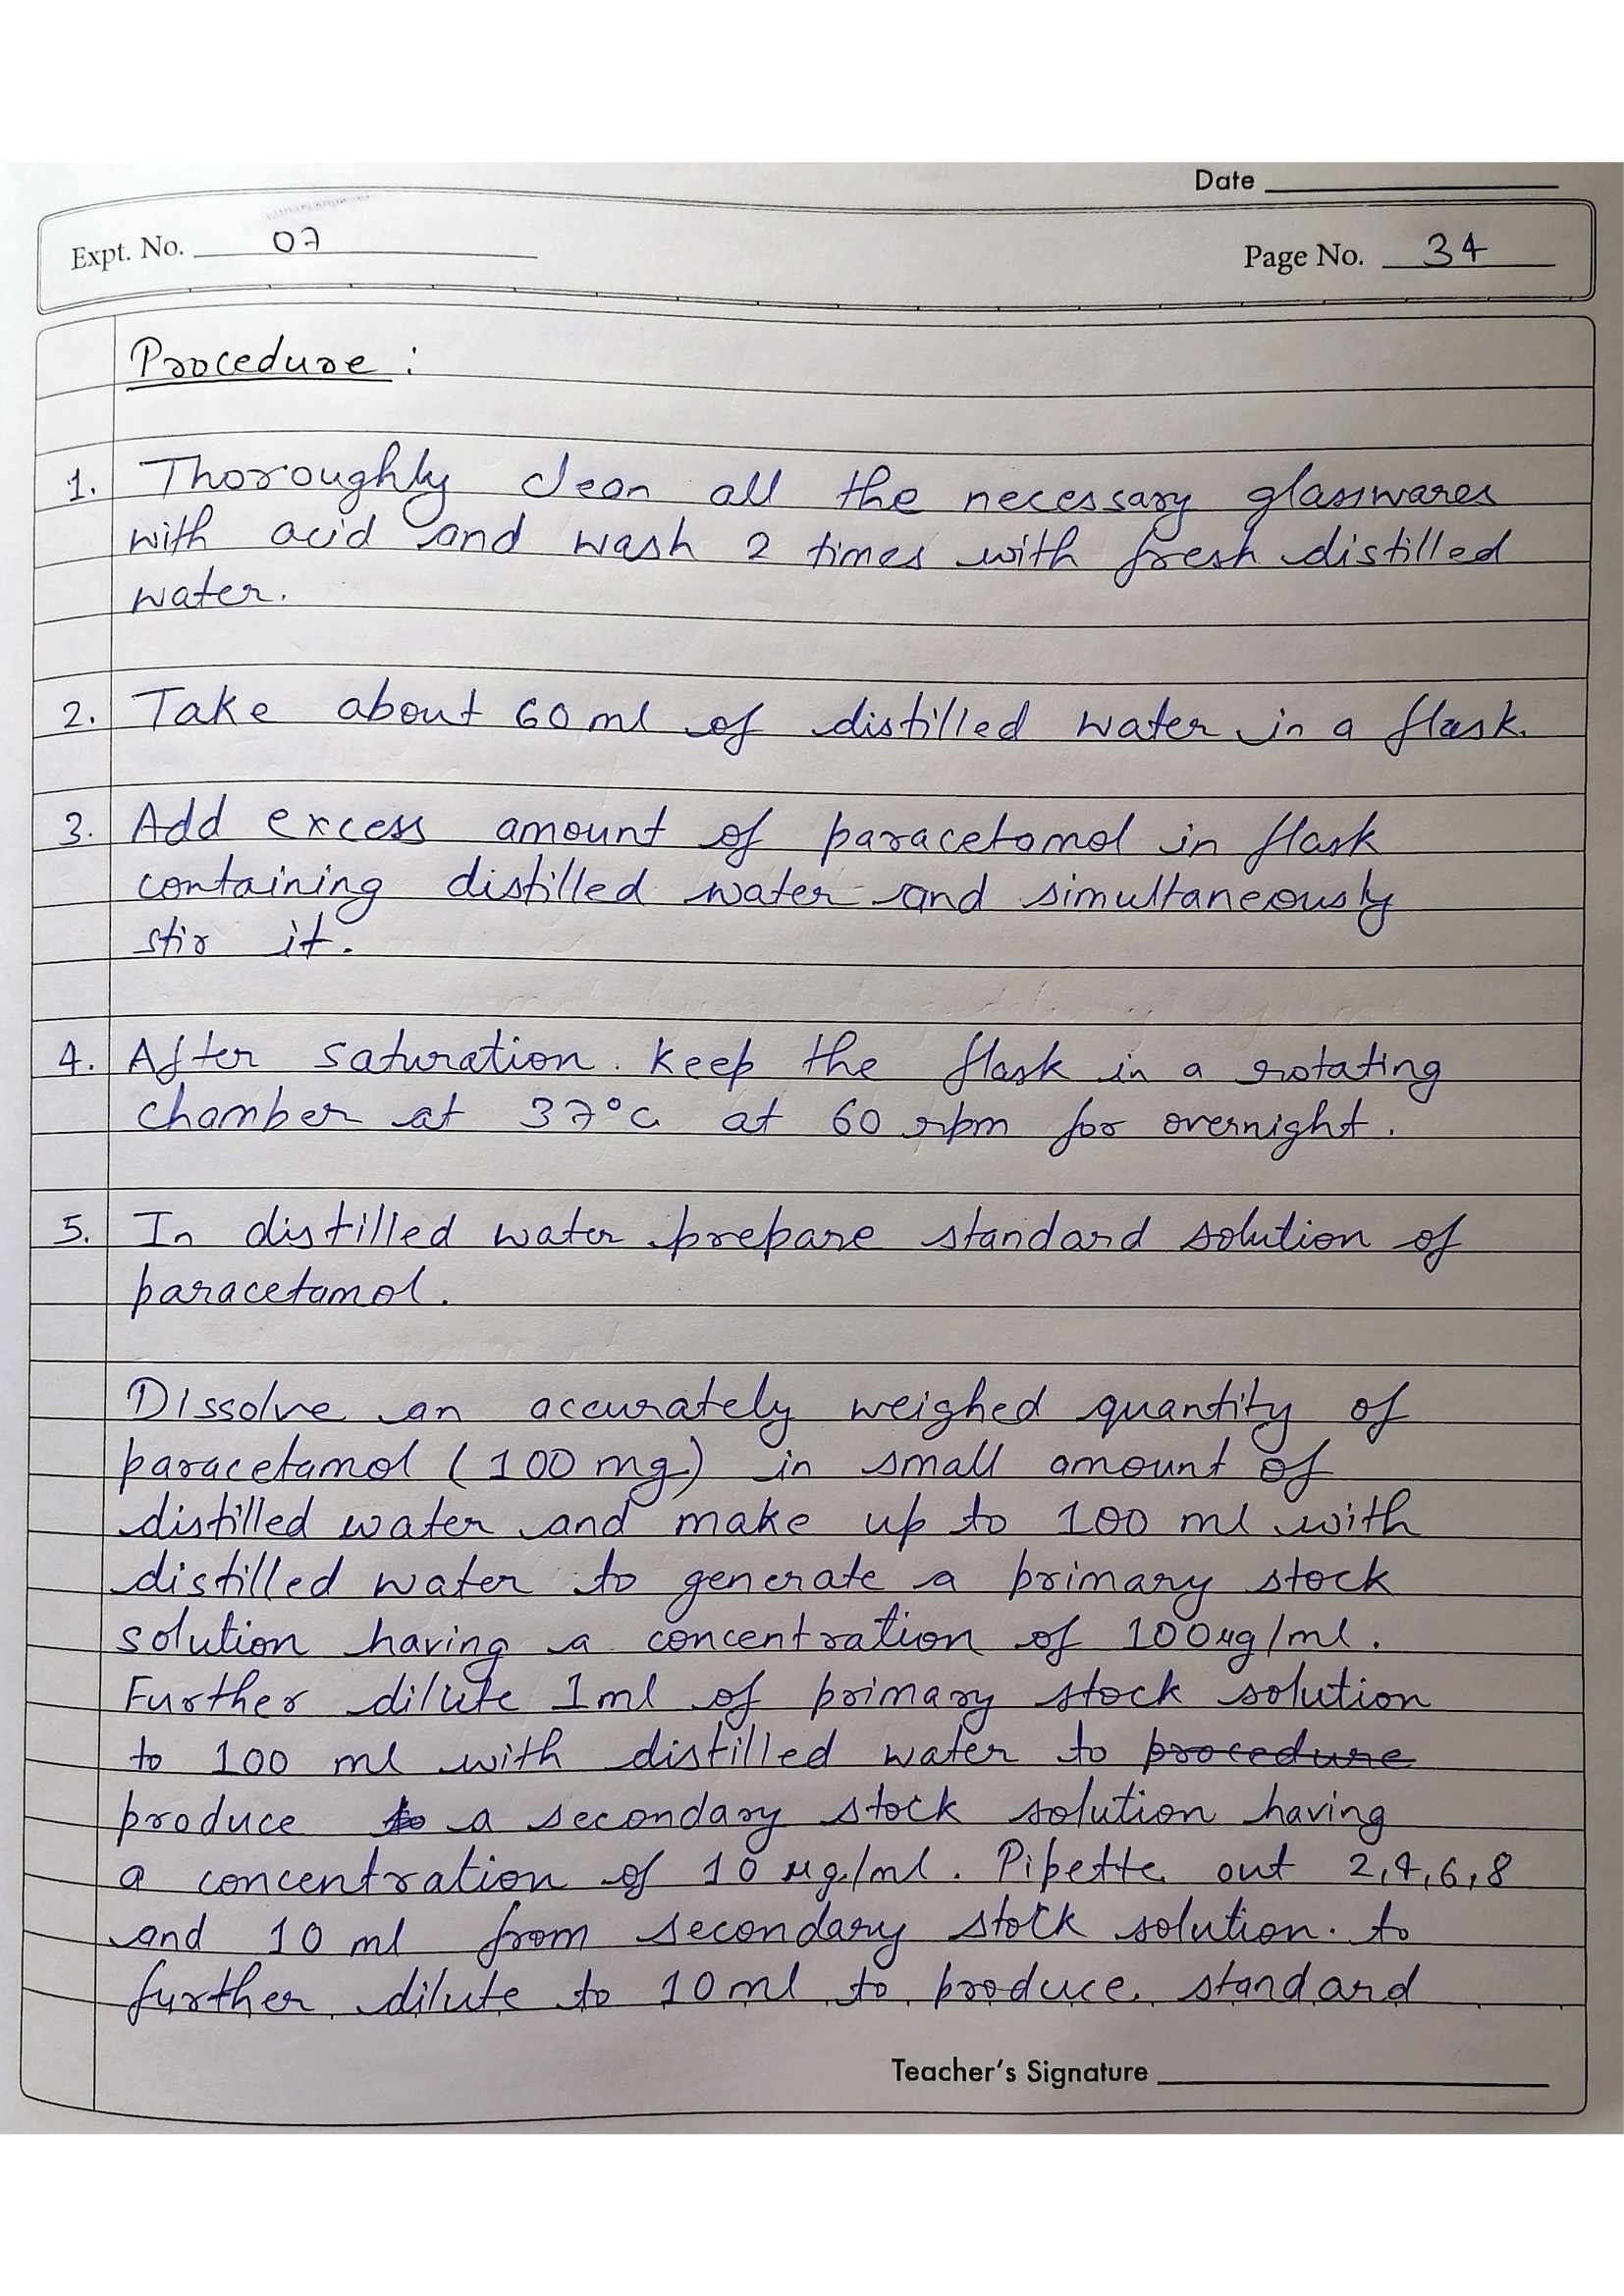 Date
Expt. No. 07
Page No. 34
Procedure :
1. Thoroughly clean all the necessary glasswares
with acid and wash 2 times with fresh distilled
water.
2. Take about 60 ml of distilled water in a flask.
3. Add excess amount of paracetamol in flask
containing distilled water and simultaneously
stir it.
4. After saturation. keep the flask in a rotating
chamber at 37°C at 60 rpm for overnight.
5. In distilled water prepare standard solution of
paracetamol.
Dissolve an accurately weighed quantity of
paracetamol (100 mg) in small amount of
distilled water and make up to 100 ml with
distilled water to generate a primary stock
solution having a concentration of 100 µg/ml.
Further dilute 1ml of primary stock solution
to 100 ml with distilled water to procedure
produce to a secondary stock solution having
a concentration of 10 µg/ml. Pipette out 2,4,6,8
and 10 ml from secondary stock solution. to
further dilute to 10 ml to produce standard
Teacher's Signature